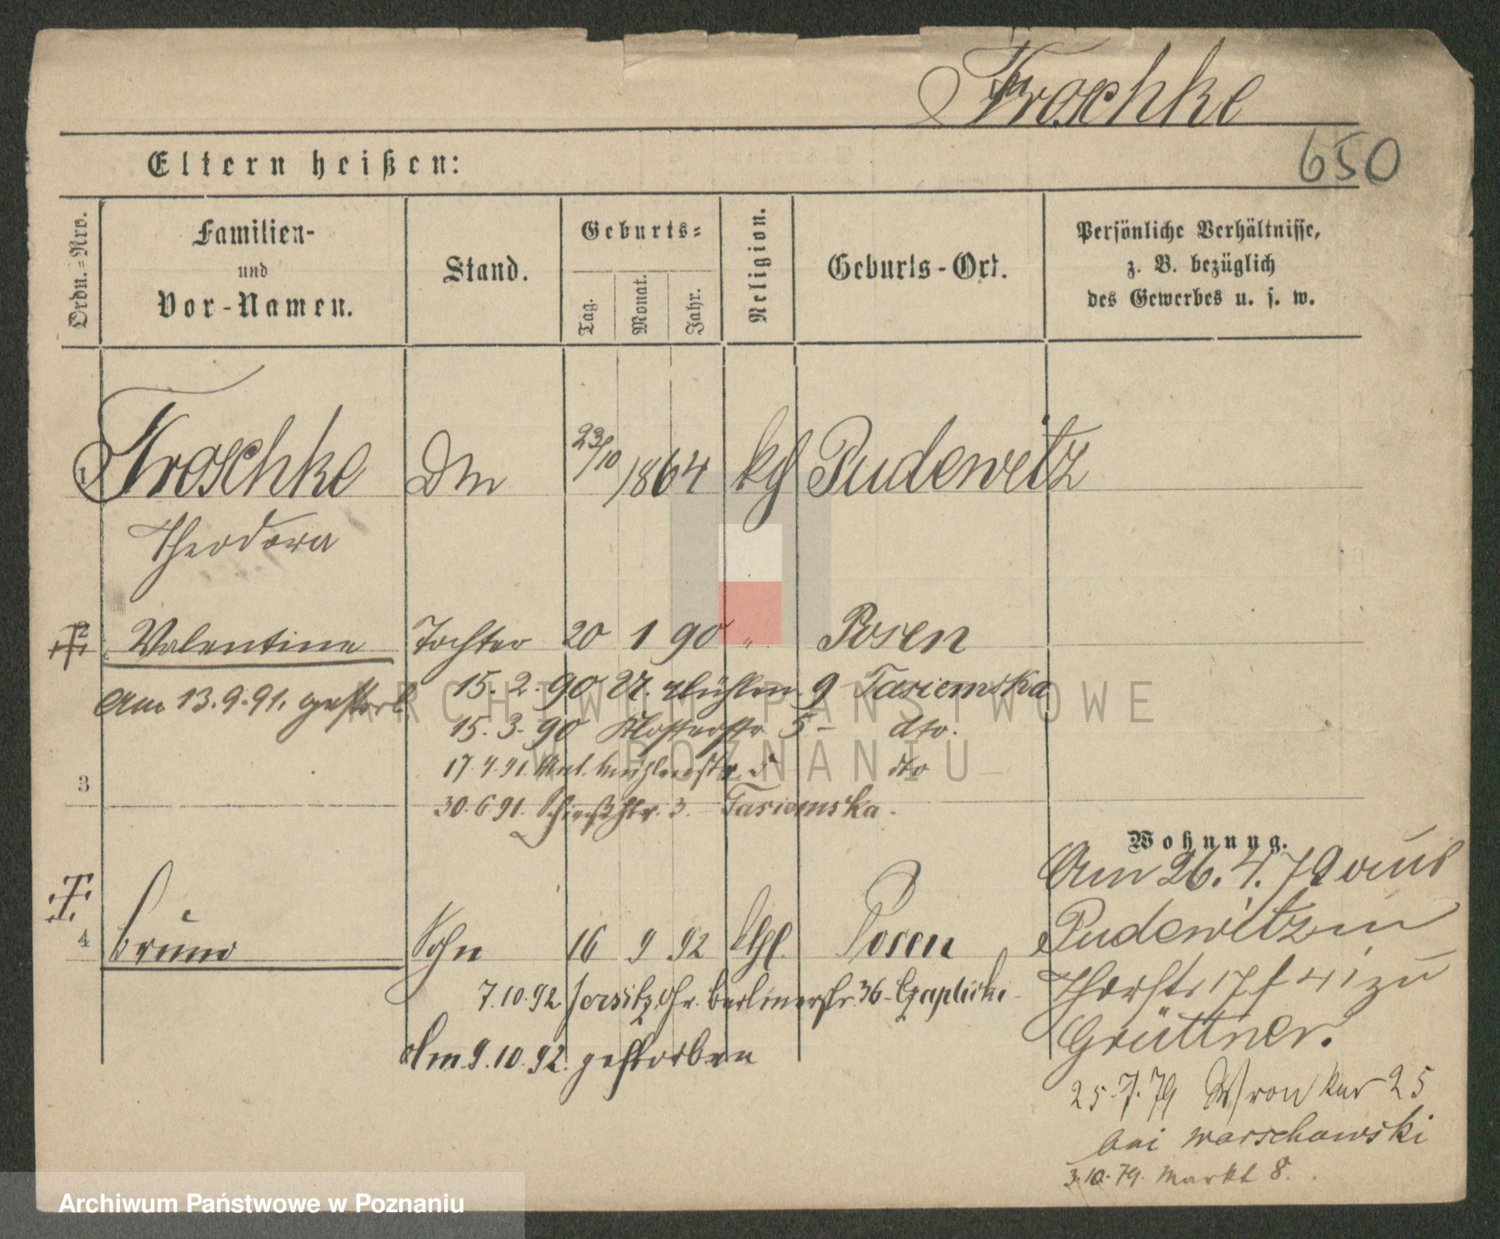 Froschke
650
Eltern heißen:
Ordn.=Nro.
Familien-
und
Vor-Namen.
Stand.
Geburts=
Tag.
Monat.
Jahr.
Religion.
Geburts-Ort.
Persönliche Verhältnisse,
z. B. bezüglich
des Gewerbes u. s. w.
1 Froschke 23/10 1864 Pudewitz
Theodora
2 Valentine Tochter 20 1 90 " Posen
Am 13.9.91. gestorb
15. 2. 90 Mühlen 9 Tasiemska
15. 3. 90 Klosterstr 5 - dto.
17.4.91 dto
3
30.6.91. Schießstr. 3. Tasiemska.
Wohnung.
4 Bruno Sohn 16 9 92 kthl. Posen
7.10.92 Jersitz, Gr. Berlinerstr. 36 - Gaplicki
Am 9.10.92. gestorben
Am 26.4.79 aus
Pudewitz in
17 zu
Grüttner.
25.7.79 Wronker 25
bei Warschawski
3.10.79. Markt 8.
ARCHIWUM PAŃSTWOWE
W POZNANIU
Archiwum Państwowe w Poznaniu